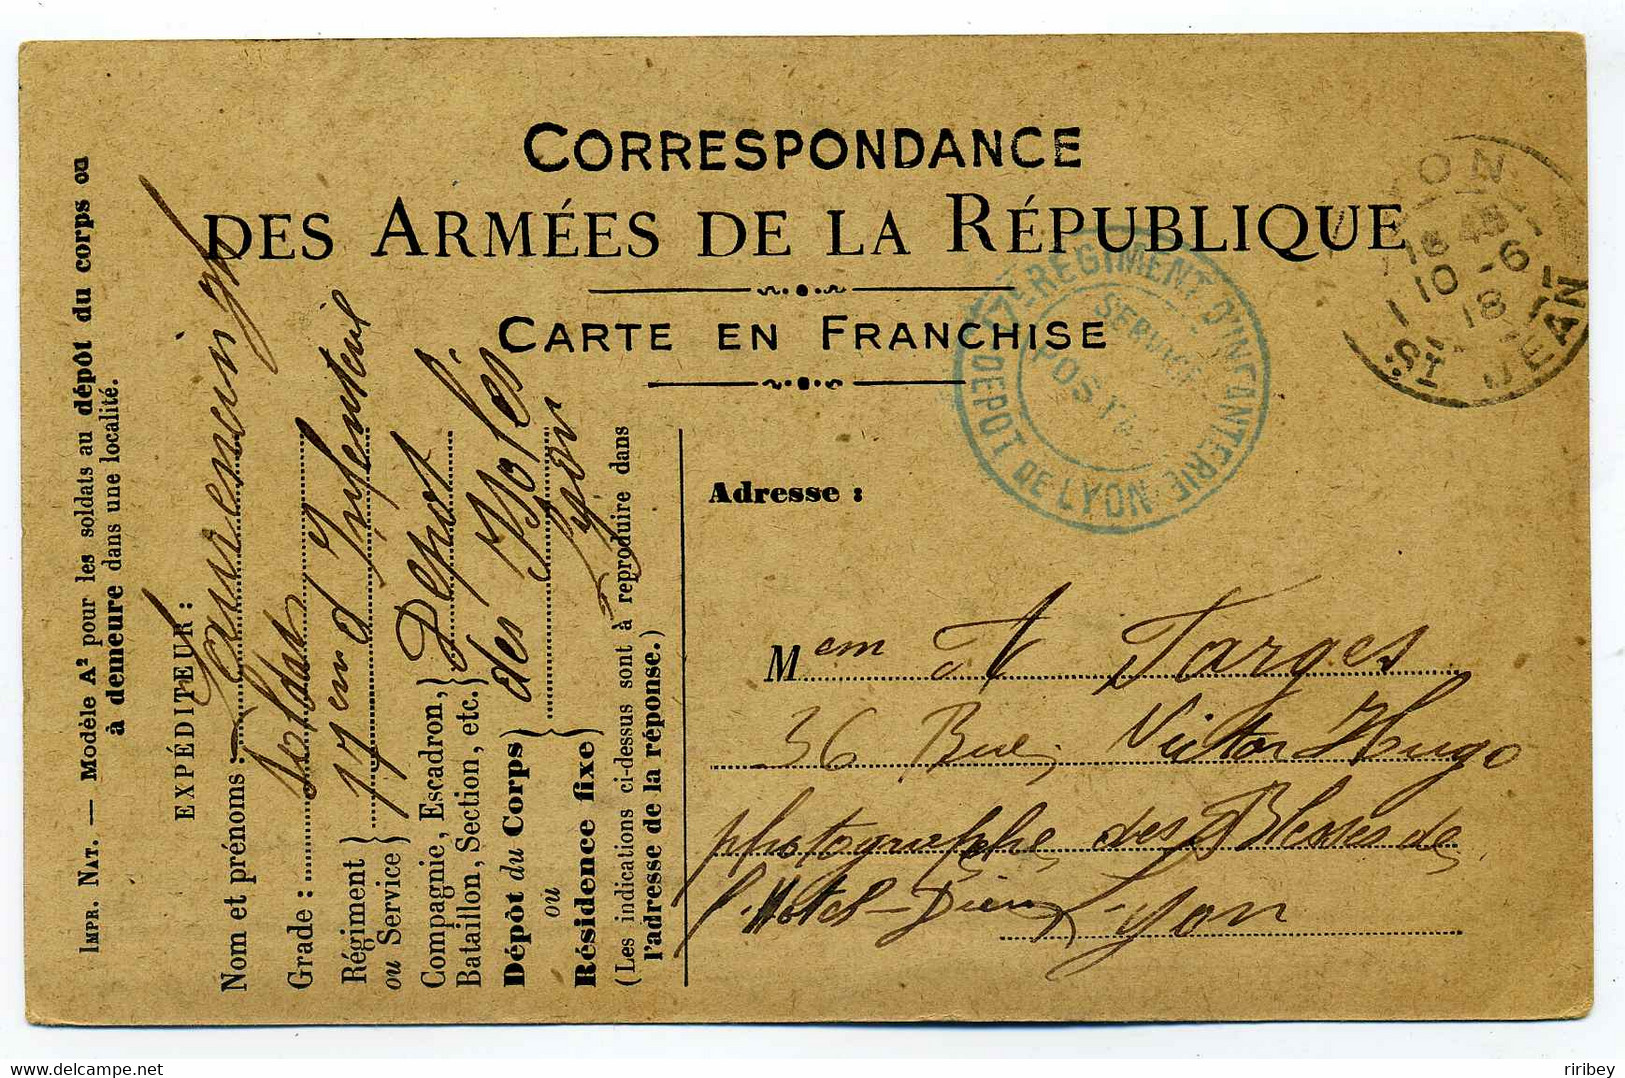 CORRESPONDANCE
DES ARMÉES DE LA RÉPUBLIQUE
CARTE EN FRANCHISE
IMPR. NAT. — Modèle A² pour les soldats au dépôt du corps ou
à demeure dans une localité.
EXPÉDITEUR :
Nom et prénoms :
Grade : soldat
Régiment
ou Service } 17em d'Infenterie
Compagnie, Escadron,
Bataillon, Section, etc. } Depot
Dépôt du Corps
ou
Résidence fixe } des
Lyon
(Les indications ci-dessus sont à reproduire dans
l'adresse de la réponse.)
17E REGIMENT D'INFANTERIE
DEPOT DE LYON
SERVICE
POSTAL
LYON
18 45
10 -6
18
ST JEAN
Adresse :
Mem A Targes
36 Rue Victor Hugo
photographe des Blesses de
l'Hotel-Dieu Lyon
ribey